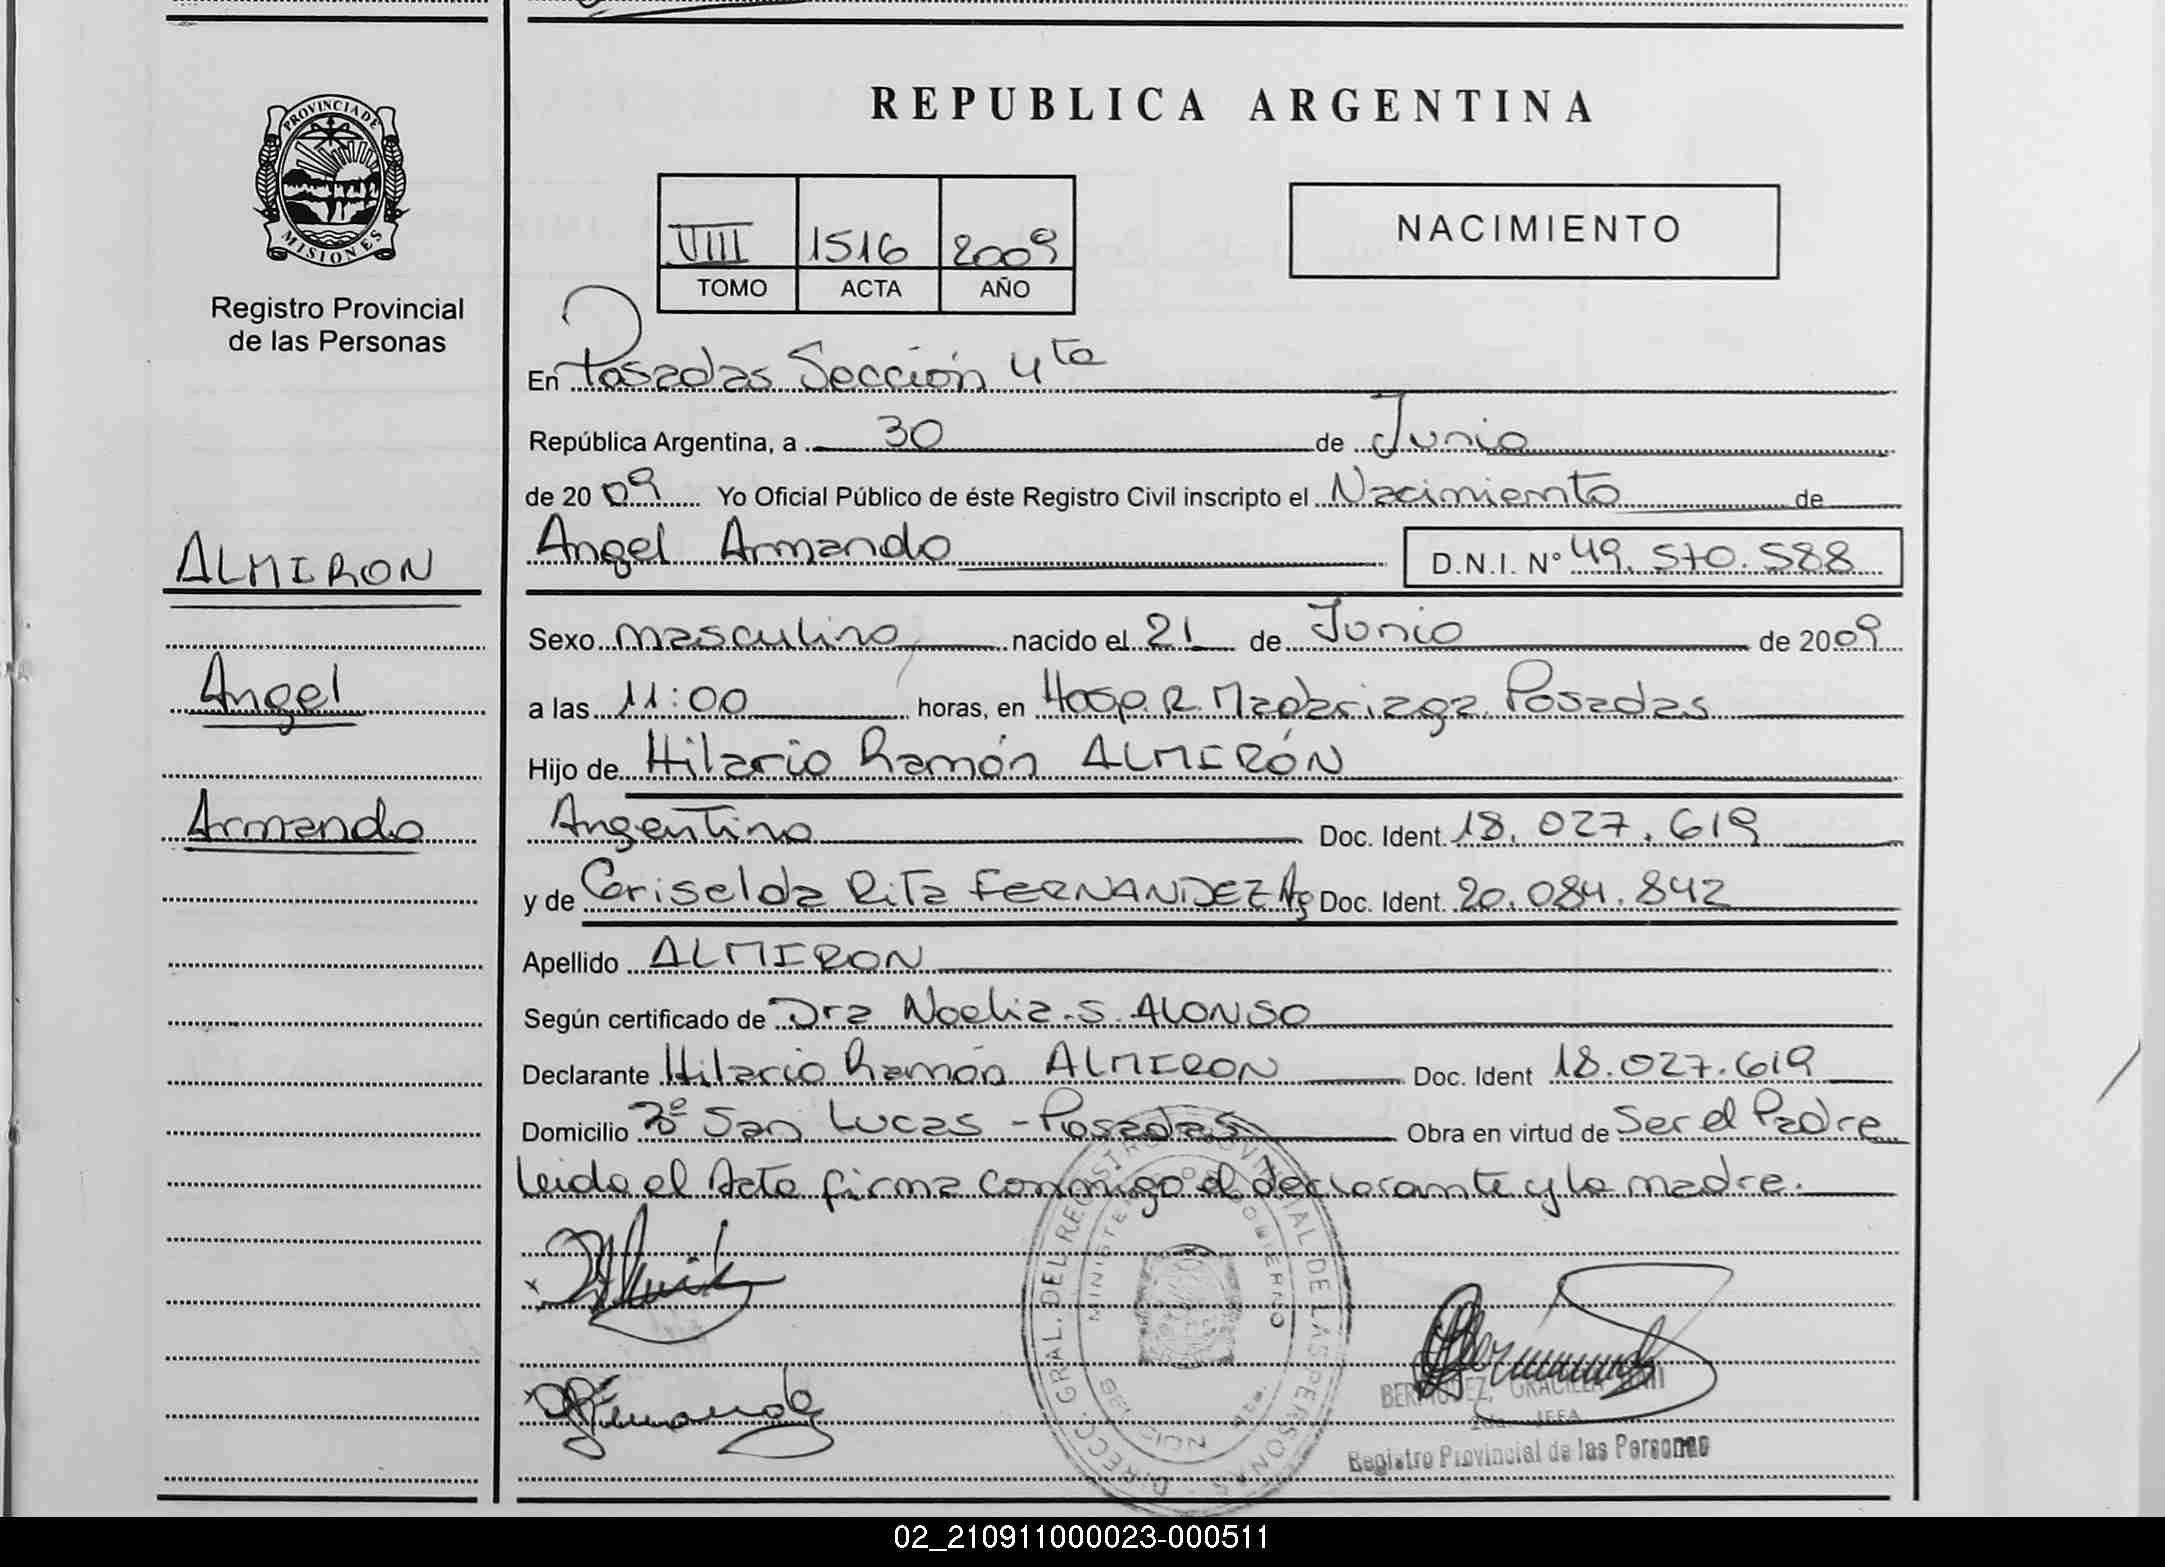 PROVINCIA DE
MISIONES
Registro Provincial
de las Personas
ALMIRON
Angel
Armando
REPUBLICA ARGENTINA
VIII 1516 2009
TOMO ACTA AÑO
NACIMIENTO
En Posadas Sección 4ta
República Argentina, a 30 de Junio
de 2009 Yo Oficial Público de éste Registro Civil inscripto el Nacimiento de
Angel Armando D.N.I. Nº 49.570.588
Sexo masculino nacido el 21 de Junio de 2009
a las 11:00 horas, en Hosp. R. Madariaga Posadas
Hijo de Hilario Ramón ALMIRÓN
Argentino Doc. Ident. 18.027.619
y de Griselda Rita FERNANDEZ Ag Doc. Ident. 20.084.842
Apellido ALMIRON
Según certificado de Dra Noelia S. ALONSO
Declarante Hilario Ramón ALMIRON Doc. Ident 18.027.619
Domicilio Bº San Lucas - Posadas Obra en virtud de Ser el Padre
leido el Acta firma conmigo el declarante y la madre.
DIRECC. GRAL. DEL REGISTRO PROVINCIAL DE LAS PERSONAS
MINISTERIO DE GOBIERNO
BERMUDEZ, GRACIELA
JEFA
Registro Provincial de las Personas
02_210911000023-000511